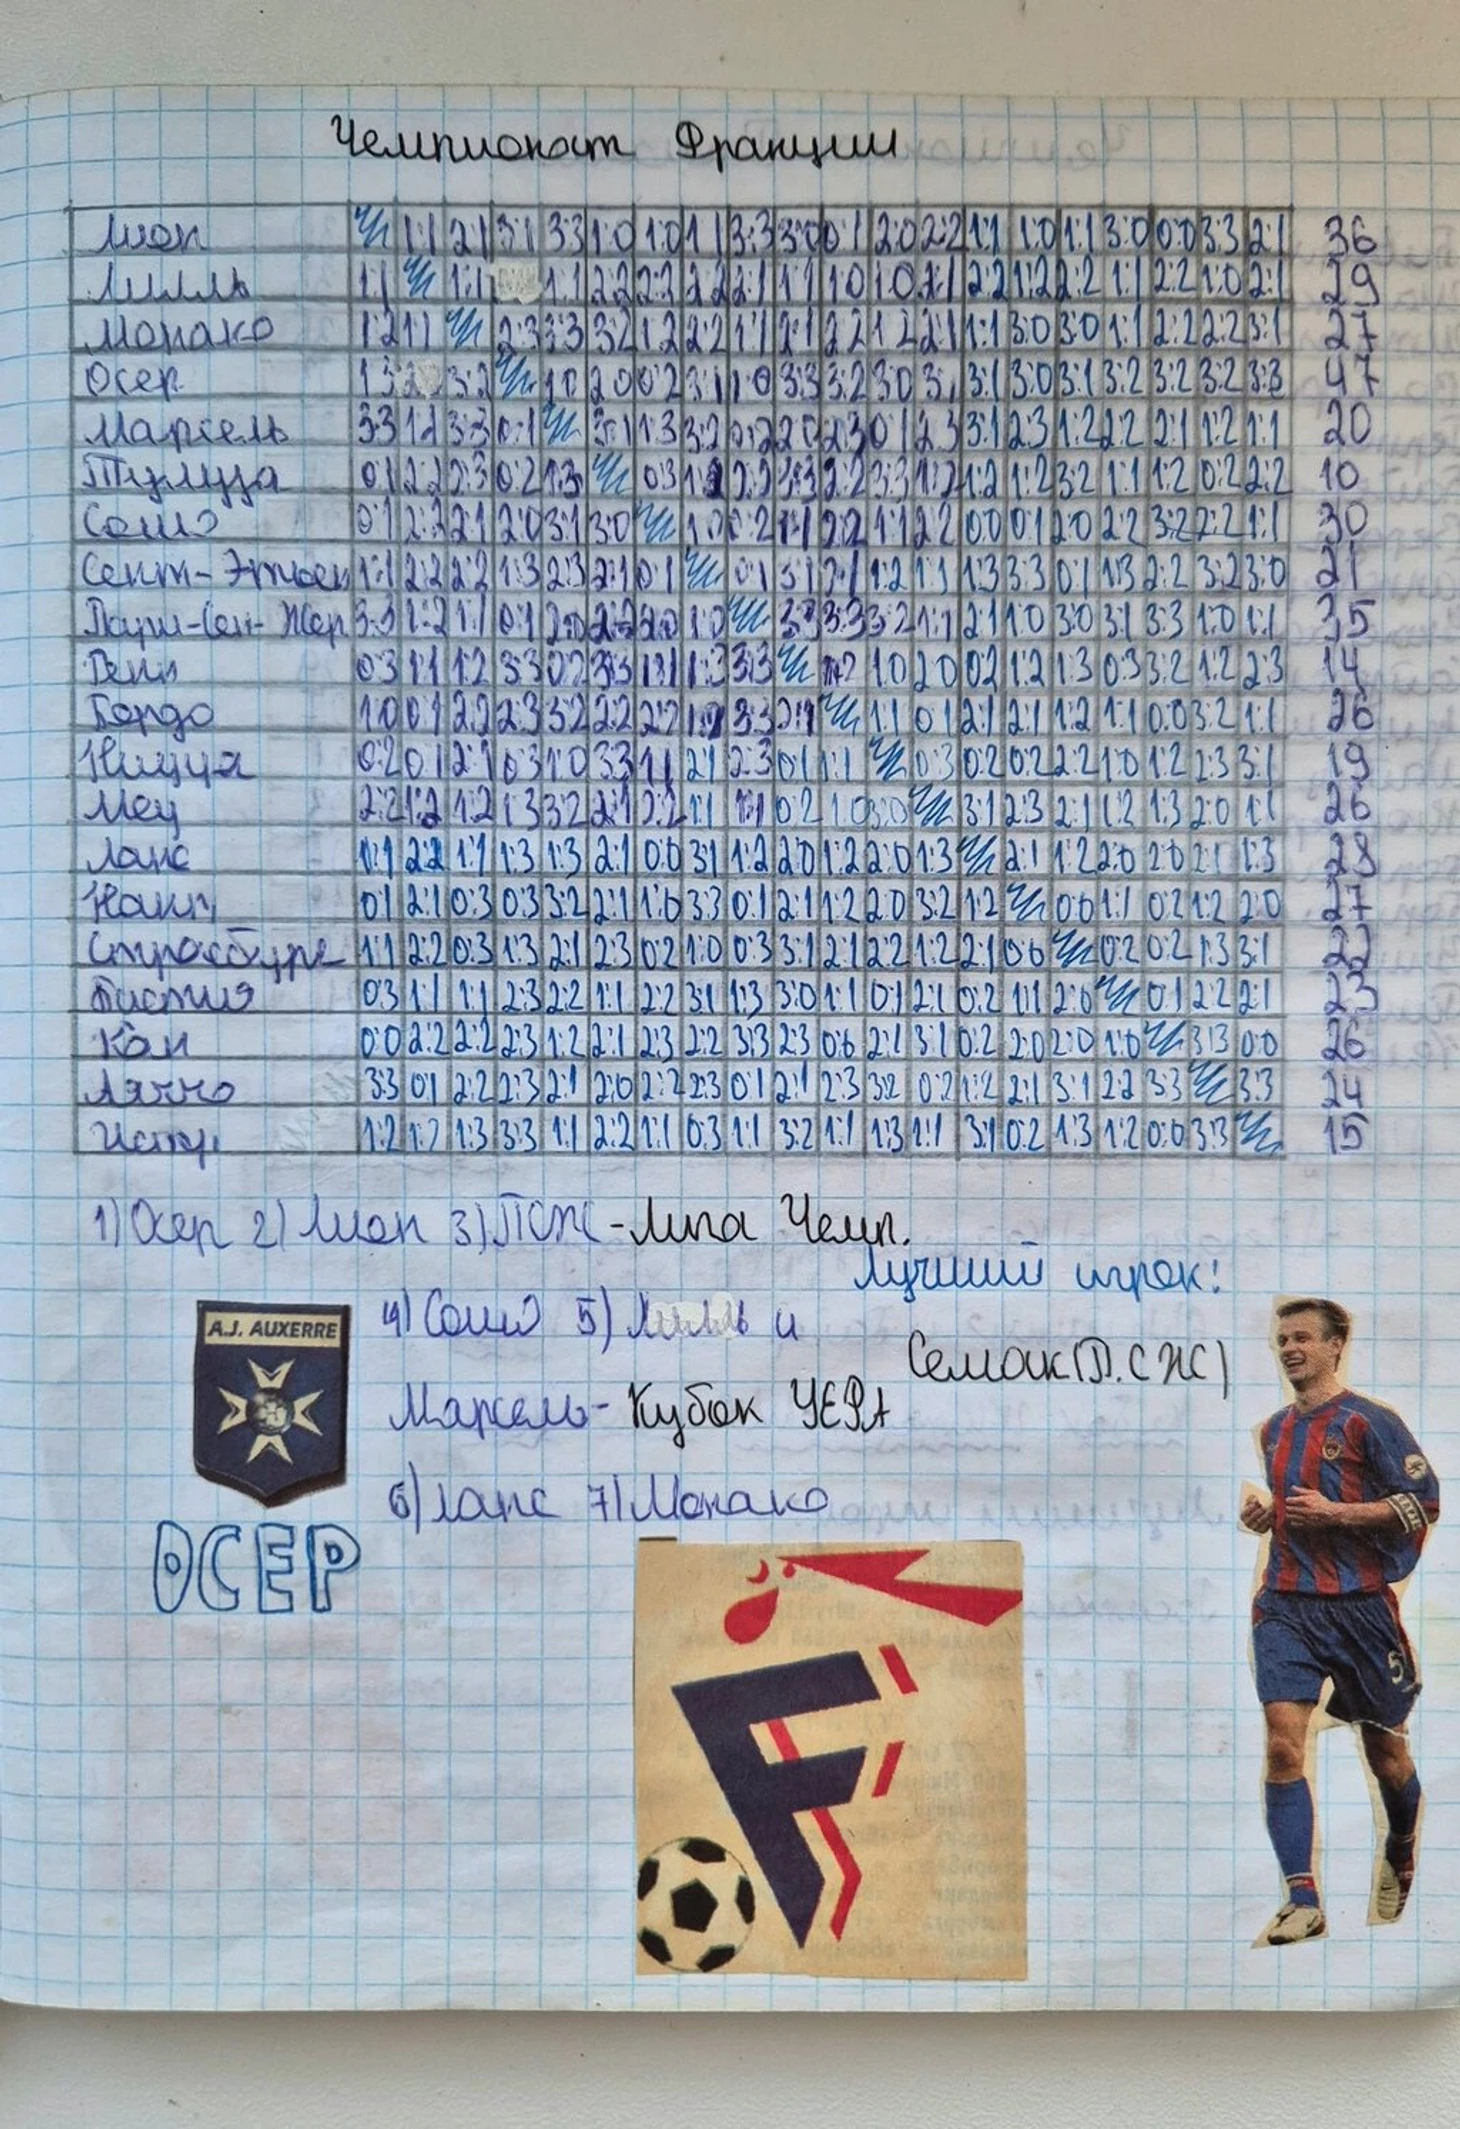 Чемпионат Франции
Лион 1:1 2:1 3:1 3:3 1:0 1:0 1:1 3:3 3:0 0:1 2:0 2:2 1:1 1:0 1:1 3:0 0:0 3:3 2:1 36
Лилль 1:1 1:1 1:1 2:2 2:2 2:2 2:1 1:1 1:0 1:0 2:1 2:2 1:2 2:2 1:1 2:2 1:0 2:1 29
Монако 1:2 1:1 2:3 3:3 3:2 1:2 2:2 1:1 2:1 2:2 1:2 2:1 1:1 3:0 3:0 1:1 2:2 2:2 3:1 27
Осер 1:3 3:2 1:0 2:0 0:2 3:1 1:0 3:3 3:2 3:0 3:1 3:1 3:0 3:1 3:2 3:2 3:2 3:3 47
Марсель 3:3 1:1 3:3 0:1 3:1 1:3 3:2 0:2 2:0 2:3 0:1 2:3 3:1 2:3 1:2 2:2 2:1 1:2 1:1 20
Тулуза 0:1 2:2 2:3 0:2 1:3 0:3 1:2 2:2 3:3 2:2 3:3 1:2 1:2 1:2 3:2 1:1 1:2 0:2 2:2 10
Сошо 0:1 2:2 2:1 2:0 3:1 3:0 1:0 0:2 1:1 2:2 1:1 2:2 0:0 0:1 2:0 2:2 3:2 2:2 1:1 30
Сент-Этьен 1:1 2:2 2:2 1:3 2:3 2:1 0:1 0:1 3:1 2:1 1:2 1:1 1:3 3:3 0:1 1:3 2:2 3:2 3:0 21
Пари-Сен-Жер. 3:3 1:2 1:1 0:1 2:0 2:2 2:0 1:0 3:3 3:3 3:2 1:1 2:1 1:0 3:0 3:1 3:3 1:0 1:1 35
Ренн 0:3 1:1 1:2 3:3 0:2 3:3 1:1 1:3 3:3 1:2 1:0 2:0 0:2 1:2 1:3 0:3 3:2 1:2 2:3 14
Бордо 1:0 0:1 2:2 2:3 3:2 2:2 2:2 1:2 3:3 2:1 1:1 0:1 2:1 2:1 1:2 1:1 0:0 3:2 1:1 26
Ницца 0:2 0:1 2:1 0:3 1:0 3:3 1:1 2:1 2:3 0:1 1:1 0:3 0:2 0:2 2:2 1:0 1:2 2:3 3:1 19
Мец 2:2 1:2 1:2 1:3 3:2 2:1 2:2 1:1 1:1 0:2 1:0 3:0 3:1 2:3 2:1 1:2 1:3 2:0 1:1 26
Ланс 1:1 2:2 1:1 1:3 1:3 2:1 0:0 3:1 1:2 2:0 1:2 2:0 1:3 2:1 1:2 2:0 2:0 2:1 1:3 28
Нант 0:1 2:1 0:3 0:3 3:2 2:1 1:0 3:3 0:1 2:1 1:2 2:0 3:2 1:2 0:0 1:1 0:2 1:2 2:0 27
Страсбург 1:1 2:2 0:3 1:3 2:1 2:3 0:2 1:0 0:3 3:1 2:1 2:2 1:2 2:1 0:0 0:2 0:2 1:3 3:1 22
Бастия 0:3 1:1 1:1 2:3 2:2 1:1 2:2 3:1 1:3 3:0 1:1 0:1 2:1 0:2 1:1 2:0 0:1 2:2 2:1 23
Кан 0:0 2:2 2:2 2:3 1:2 2:1 2:3 2:2 3:3 2:3 0:0 2:1 3:1 0:2 2:0 2:0 1:0 3:3 0:0 26
Аяччо 3:3 0:1 2:2 2:3 2:1 2:0 2:2 2:3 0:1 2:1 2:3 3:2 0:2 1:2 2:1 3:1 2:2 3:3 3:3 24
Истр 1:2 1:2 1:3 3:3 1:1 2:2 1:1 0:3 1:1 3:2 1:1 1:3 1:1 3:1 0:2 1:3 1:2 0:0 3:3 15
1) Осер 2) Лион 3) ПСЖ - Лига Чемп.
Лучший игрок:
A.J. AUXERRE
4) Сошо 5) Лилль и
Семак (П.СЖ)
Марсель - Кубок УЕФА
6) Ланс 7) Монако
ОСЕР
F
5